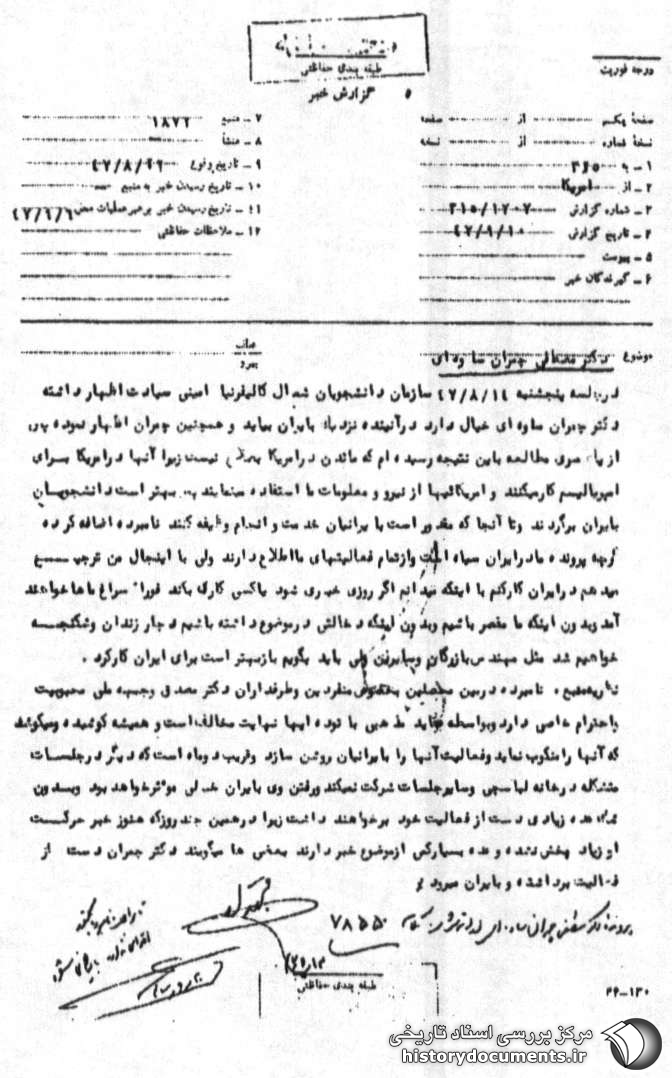 طبقه بندی حفاظتی
گزارش خبر
درجه فوریت
صفحه یکم از صفحه
نسخه شماره از نسخه
۱ - به ۳۱۵
۲ - از امریکا
۳ - شماره گزارش ۳۱۵/۱۷۰۷
۴ - تاریخ گزارش ۴۷/۹/۱۰
۵ - پیوست
۶ - گیرندگان خبر
۷ - منبع ۱۸۷۲
۸ - منشأ
۹ - تاریخ وقوع
۱۰ - تاریخ رسیدن خبر به منبع
۱۱ - تاریخ رسیدن خبر برهبر عملیات
۱۲ - ملاحظات حفاظتی
موضوع دکتر مصطفی چمران ساوه ای
عطف
پیرو
درجلسه پنجشنبه ۴۷/۸/۱٤ سازمان دانشجویان شمال کالیفرنیا امینی سیادت اظهار داشته
دکتر چمران ساوه ای خیال دارد درآینده نزدیک بایران بیاید و همچنین چمران اظهار نموده پس
از یک سری مطالعه باین نتیجه رسیده ام که ماندن درامریکا نیست زیرا آنها درامریکا برای
امپریالیسم کارمیکنند و امریکائیها از نیرو و معلومات ما استفاده مینمایند پس بهتر است دانشجویان
بایران برگردند وتا آنجا که مقدور است با یرانیان خدمت و انجام وظیفه کنند نامبرده اضافه کرده
گرچه پرونده مادرایران سیاه است وازتمام فعالیتهای مااطلاع دارند ولی با اینحال من ترجیح
میدهم درایران کارکنم با اینکه میدانم اگر روزی خبری شود یاکسی کاری بکند فورا سراغ ماها خواهند
آمد وبدون اینکه ما مقصر باشیم وبدون اینکه دخالتی درموضوع داشته باشیم دچار زندان وشکنجه
خواهیم شد مثل مهندس بازرگان وسایرین ولی باید بگویم بازبهتر است برای ایران کارکرد .
نظریه منبع . نامبرده دربین محصلین بخصوص منفردین وطرفداران دکتر مصدق وجبهه ملی محبوبیت
واحترام خاصی دارد وبواسطه عقاید مذهبی با توده ایها نهایت مخالف است و همیشه کوشیده ومیکوشد
که آنها را منکوب نماید وفعالیت آنها را بایرانیان روشن سازد وقریب دوماه است که دیگر درجلسات
متشکله درخانه لباسچی وسایرجلسات شرکت نمیکند ورفتن وی بایران خیلی موثرخواهد بود وبدون
عده زیادی دست از فعالیت خود برخواهند داشت زیرا درهمین چند روزکه هنوز خبر حرکت
او زیاد پخش نشده و عده بسیارکمی ازموضوع خبر دارند بعضی ها میگویند دکتر چمران دست از
فعالیت برداشته و بایران میرود
۷۸۵۵۰
طبقه بندی حفاظتی
۴۶-۱۳۰
مرکز بررسی اسناد تاریخی
historydocuments.ir